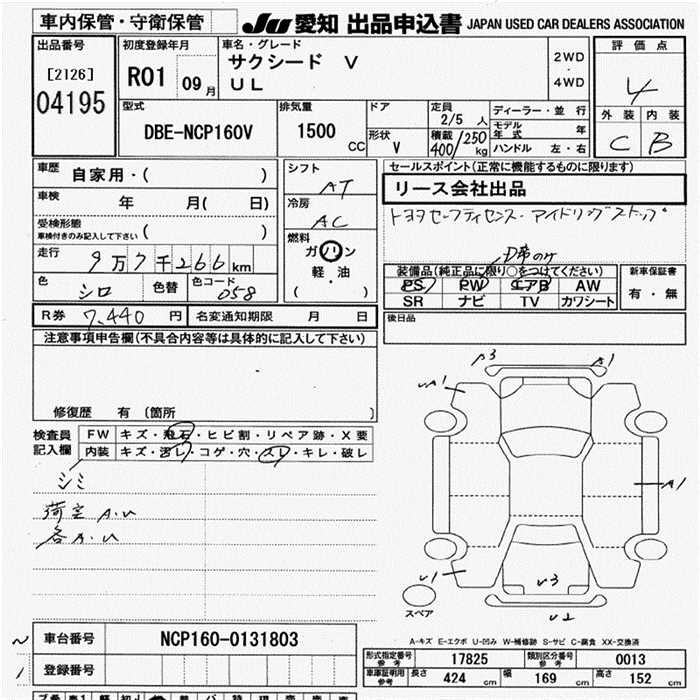 車内保管・守衛保管
JU 愛知 出品申込書 JAPAN USED CAR DEALERS ASSOCIATION
出品番号
[2126]
04195
初度登録年月
R01 09月
車名・グレード
サクシード V
UL
2WD
・
4WD
評価点
4
外装 内装
C B
型式
DBE-NCP160V
排気量
1500 CC
ドア
形状
V
定員
2/5 人
積載
400/250 kg
ディーラー・並行
モデル年式 年
ハンドル 左・右
車歴
自家用・( )
車検 年 月( 日)
受検形態
車検付きのみ記入して下さい ( )
走行
9万7千266km
色 シロ 色替 色コード 058
シフト
AT
冷房
AC
燃料
ガソリン
軽・油
( )
セールスポイント(正常に機能するものに限ります)
リース会社出品
トヨタセーフティセンス・アイドリングストップ
D席のみ
装備品(純正品に限り○をつけてください)
PS PW エアB AW
SR ナビ TV カワシート
新車保証書
有・無
R券 7,440 円 名変通知期限 月 日
後日品
注意事項申告欄(不具合内容等は具体的に記入して下さい)
修復歴 有 (箇所 )
検査員
記入欄
FW キズ・飛石・ヒビ割・リペア跡・X要
内装 キズ・汚レ・コゲ・穴・スレ・キレ・破レ
シミ
荷室 A.U
各A.U
A3 A1
A1
U1
U3
U2
スペア
A-キズ E-エクボ U-凹み W-補修跡 S-サビ C-腐食 XX-交換済
車台番号 NCP160-0131803
登録番号
形式指定番号 参考 17825 類別区分番号 参考 0013
車庫証明用 参考 長さ 424 cm 幅 169 cm 高さ 152 cm